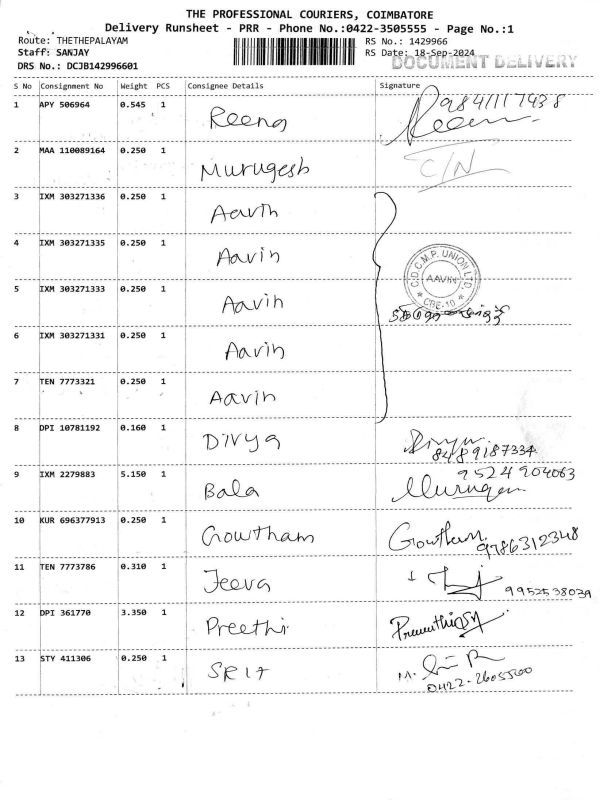 THE PROFESSIONAL COURIERS, COIMBATORE
Delivery Runsheet - PRR - Phone No.:0422-3505555 - Page No.:1
Route: THETHEPALAYAM RS No.: 1429966
Staff: SANJAY RS Date: 18-Sep-2024
DRS No.: DCJB142996601 DOCUMENT DELIVERY
S No Consignment No Weight PCS Consignee Details Signature
1 APY 506964 0.545 1 Reena 9841117438
2 MAA 110089164 0.250 1 Murugesh C/N
3 IXM 303271336 0.250 1 Aavin
4 IXM 303271335 0.250 1 Aavin
C.D.C.M.P. UNION LTD.
AAVIN
CBE-10
5 IXM 303271333 0.250 1 Aavin
6 IXM 303271331 0.250 1 Aavin
7 TEN 7773321 0.250 1 Aavin
8 DPI 10781192 0.160 1 Divya Divya
8489187334
9 IXM 2279883 5.150 1 Bala 9524904063
Murugan
10 KUR 696377913 0.250 1 Gowtham Gowtham 9786312348
11 TEN 7773786 0.310 1 Jeeva 9952538039
12 DPI 361770 3.350 1 Preethi
13 STY 411306 0.250 1 SRIT M.
0422-2605500